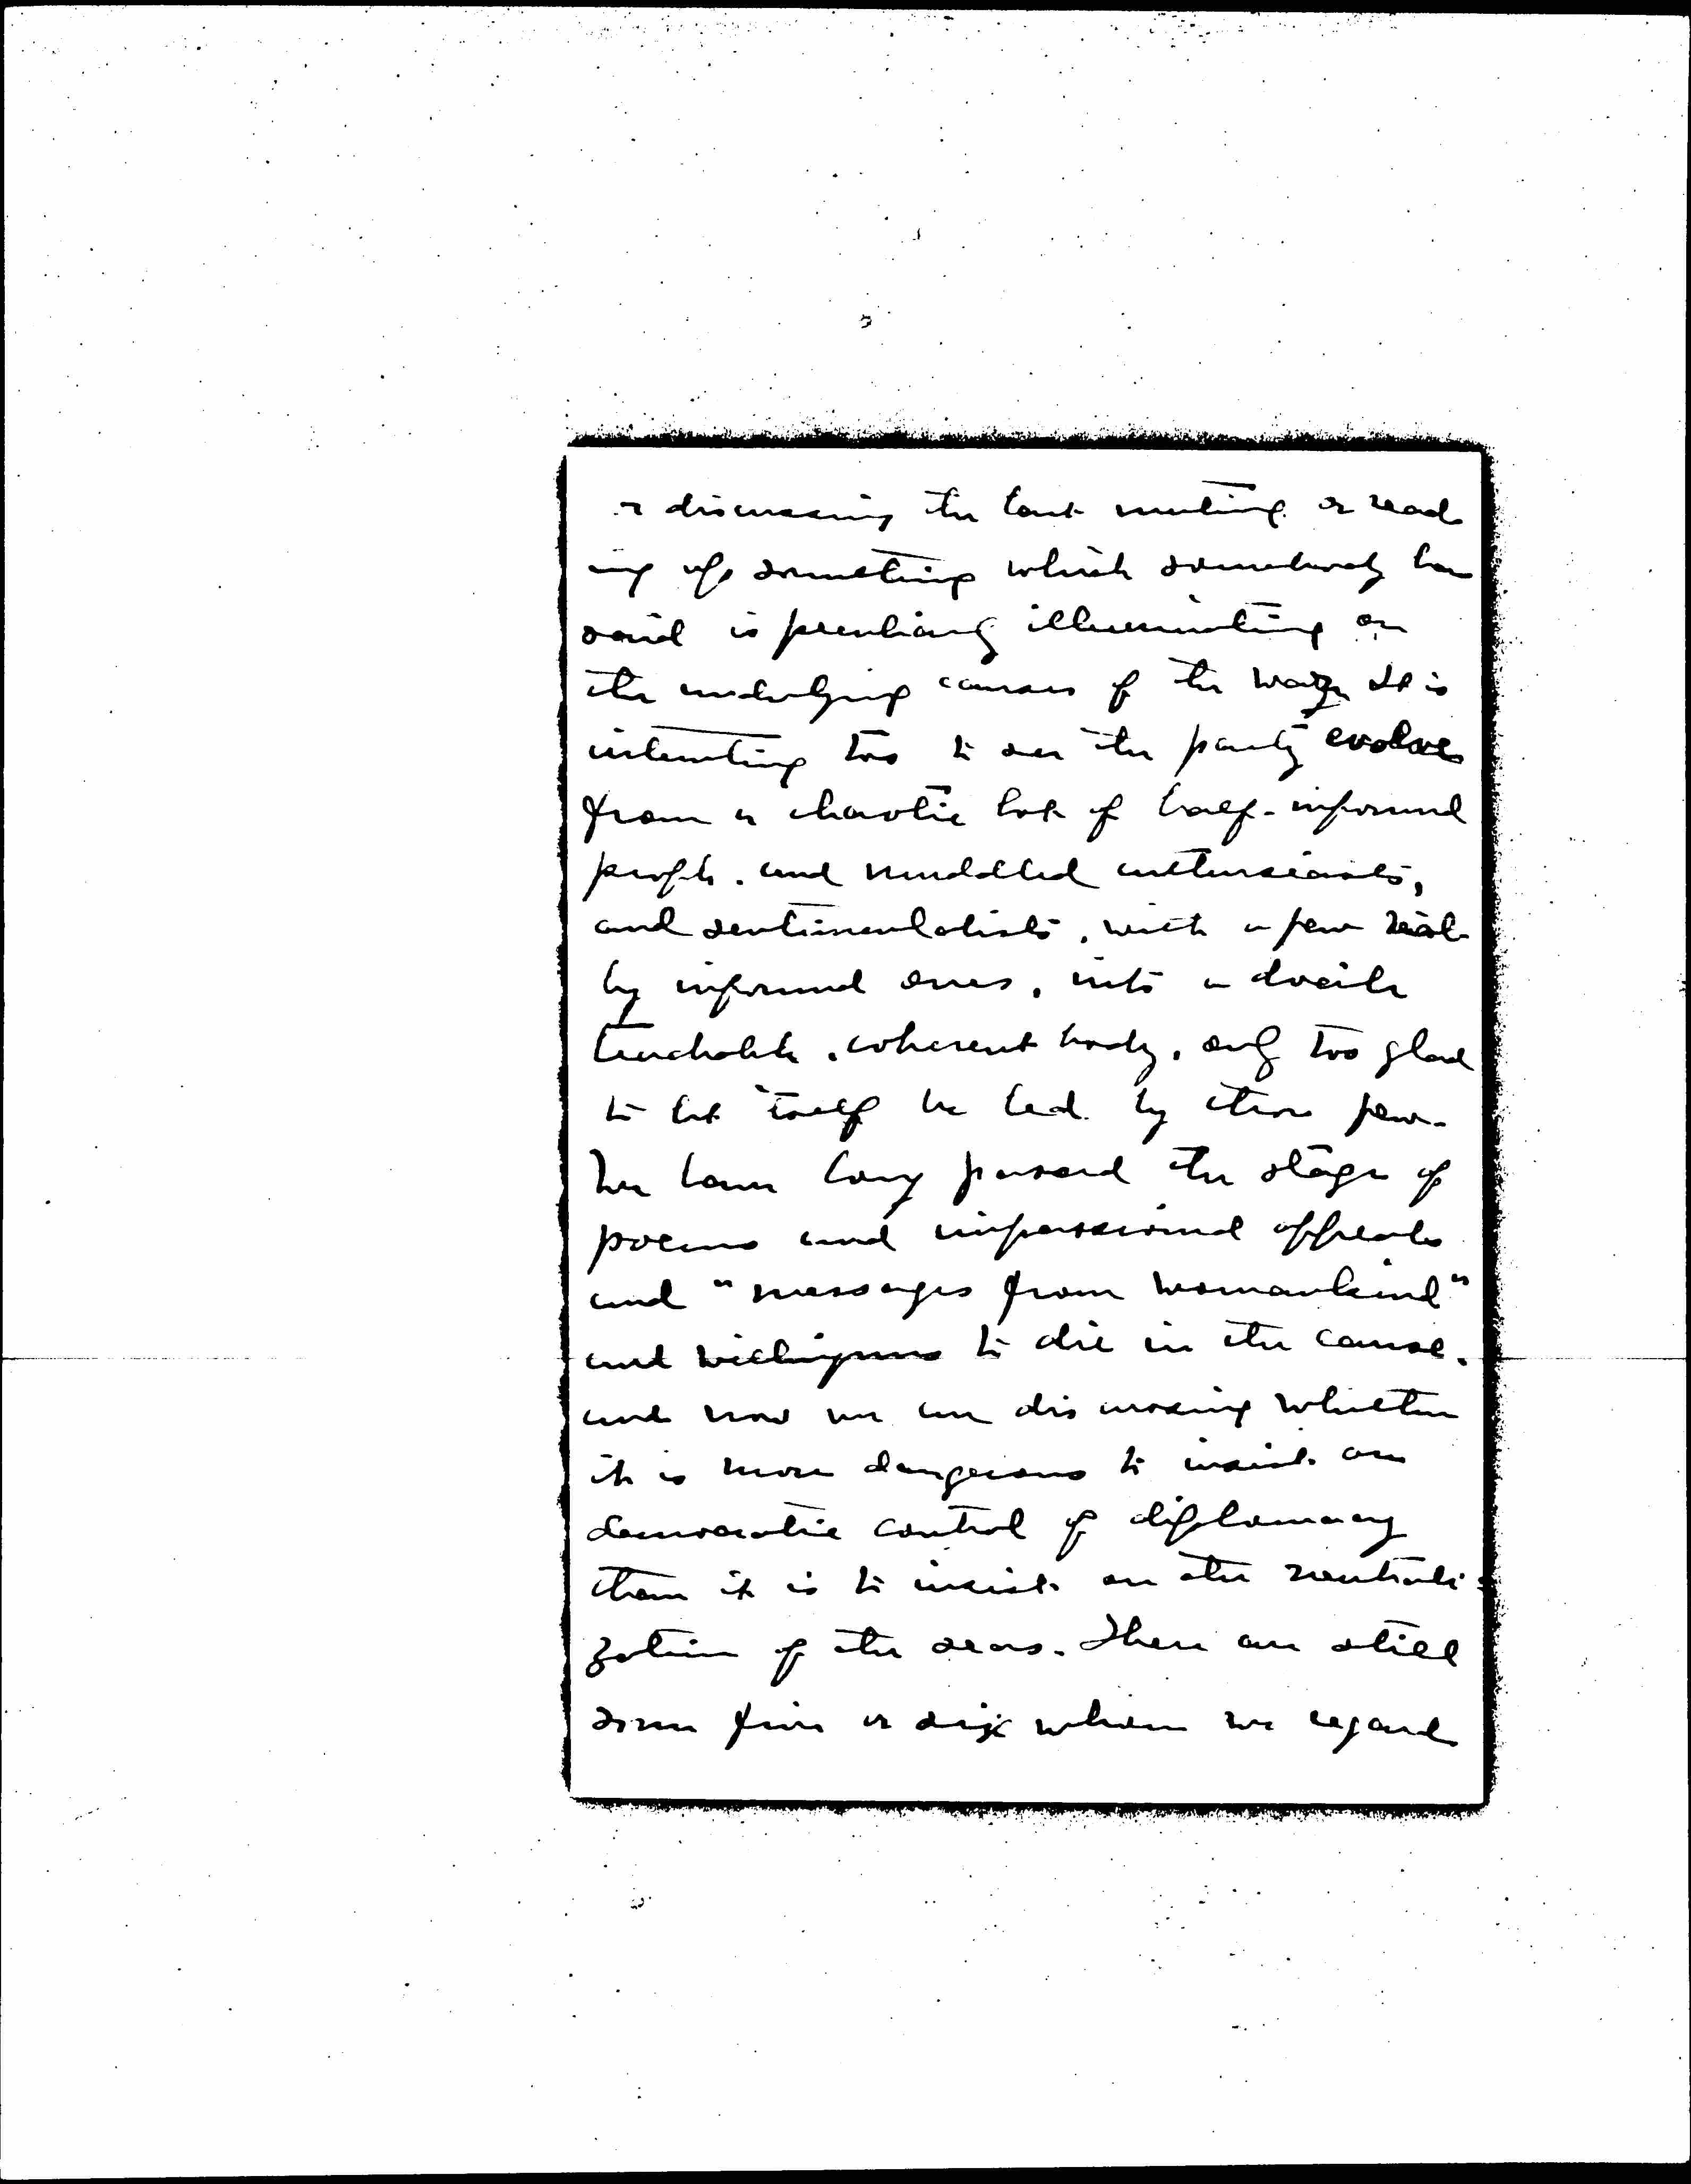 or discussing the last meeting or read
ing up something which somebody has
said is peculiarly illuminating on
the underlying causes of the war. It is
interesting too to see the party evolve
from a chaotic lot of half-informed
people. and muddled enthusiasts,
and sentimentalists, with a few real
ly informed ones, into a docile
teachable, coherent body, only too glad
to let itself be led by those few.
We have long passed the stage of
poems and impassioned appeals
and "messages from womankind"
and willingness to die in the cause,
and now we are discussing whether
it is more dangerous to insist on
democratic control of diplomacy
than it is to insist on the neutrali-
zation of the seas. There are still
some five or six whom we regard